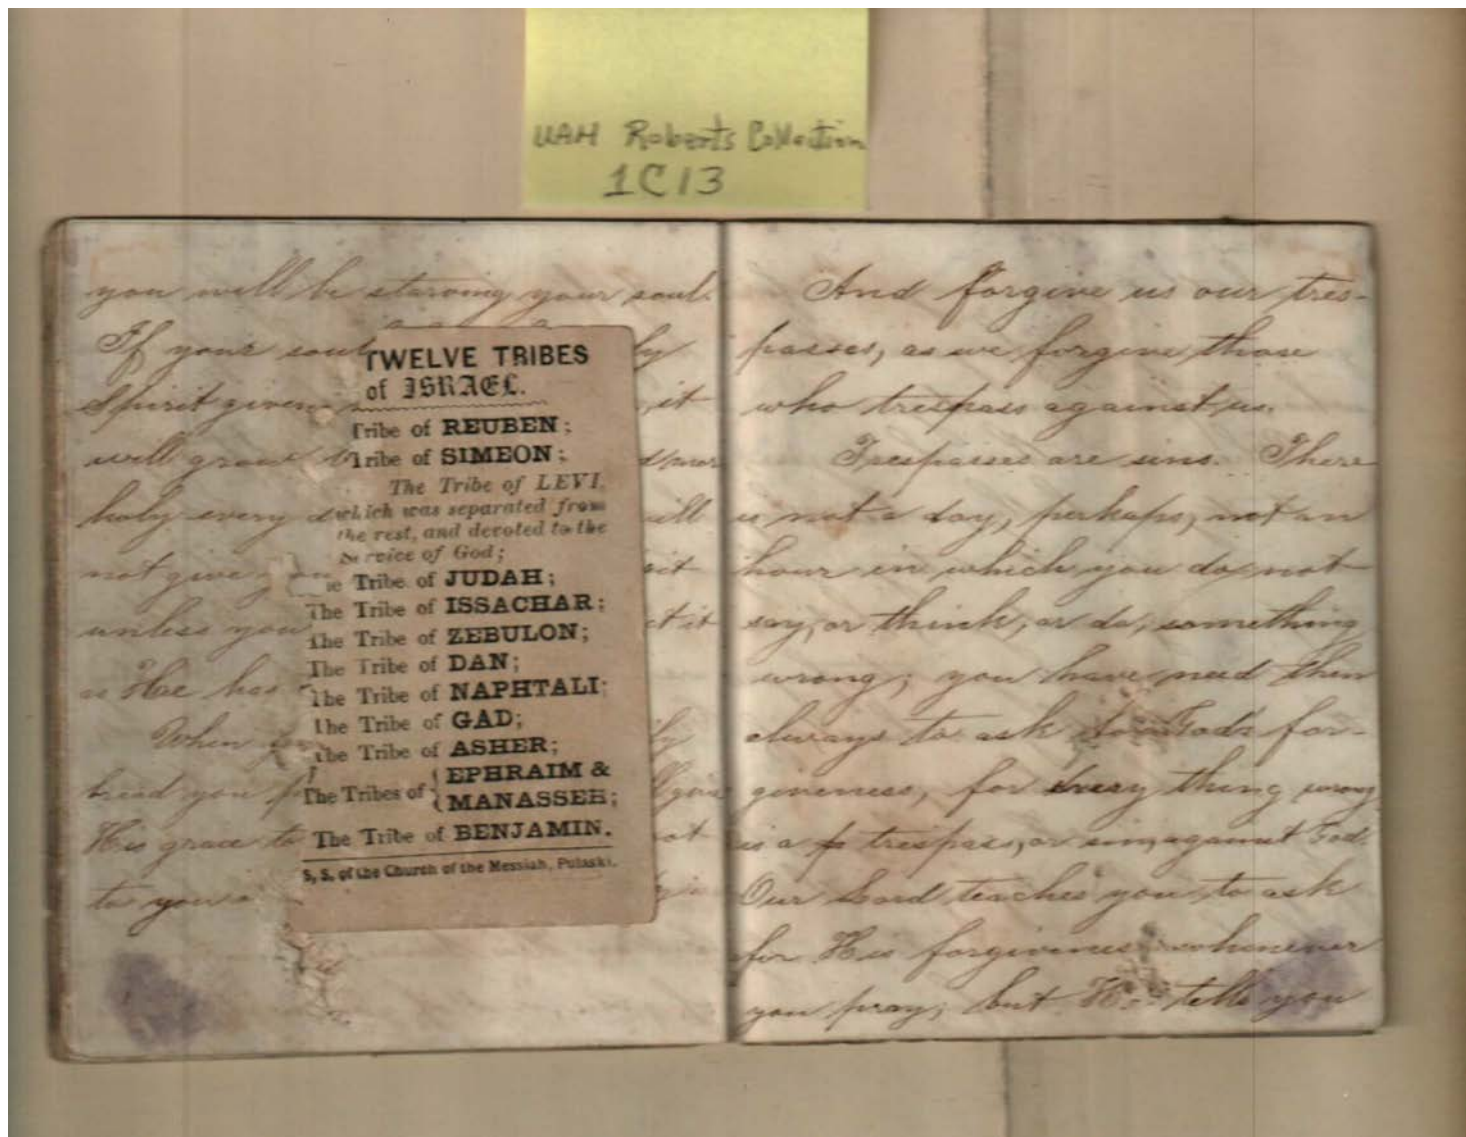 UAH Roberts Collection
1C13
you will be starving your soul.
If your soul ly
Spirit given it
will grow d more
holy every will
not give
unless you ct it
as He has
When ly
bread you
His grace to not
to you
TWELVE TRIBES
of ISRAEL.
Tribe of REUBEN;
Tribe of SIMEON;
The Tribe of LEVI,
which was separated from
the rest, and devoted to the
Service of God;
Tribe of JUDAH;
The Tribe of ISSACHAR;
The Tribe of ZEBULON;
The Tribe of DAN;
The Tribe of NAPHTALI;
The Tribe of GAD;
The Tribe of ASHER;
The Tribes of { EPHRAIM &
MANASSEH;
The Tribe of BENJAMIN.
S, S. of the Church of the Messiah, Pulaski.
And forgive us our tres-
passes, as we forgive those
who trespass against us.
Trespasses are sins. There
is not a day, perhaps, not an
hour in which you do not
say, or think, or do, something
wrong; you have need then
always to ask God's for-
giveness, for every thing wrong
is a trespass, or sin, against God.
Our Lord teaches you to ask
for His forgiveness whenever
you pray; but He tells you